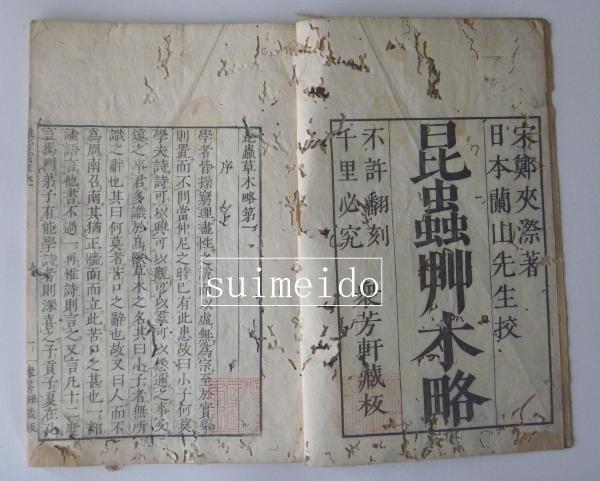 宋鄭夾漈著
日本蘭山先生挍
昆蟲艸木略
不許翻刻
千里必究
芳軒藏板
昆蟲草木略第一
序
學者皆操窮理盡性之說以虛無爲宗至於實學
則置而不問當仲尼之時已有此患故曰小子何莫
學夫詩詩可以興可以觀可以羣可以怨邇之事父
遠之事君多識於鳥獸草木之名其曰小子者無所
識之辭也其曰何莫者苦口之辭也故又曰人而不
爲周南召南其猶正牆面而立此苦口之甚也一部
論語言他書不過一再惟詩則言之又言凡十二度
言焉門弟子有能學詩者則深喜之子貢子夏在
suimeido